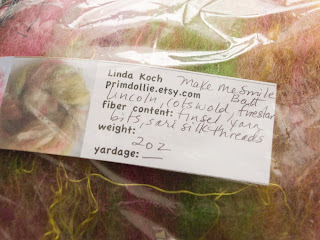 Linda Koch Make me smile
primdollie.etsy.com Batt
Lincoln, Cotswold, firestar
fiber content: tinsel yarn
bits, sari silk threads
weight:
2oz
yardage: __